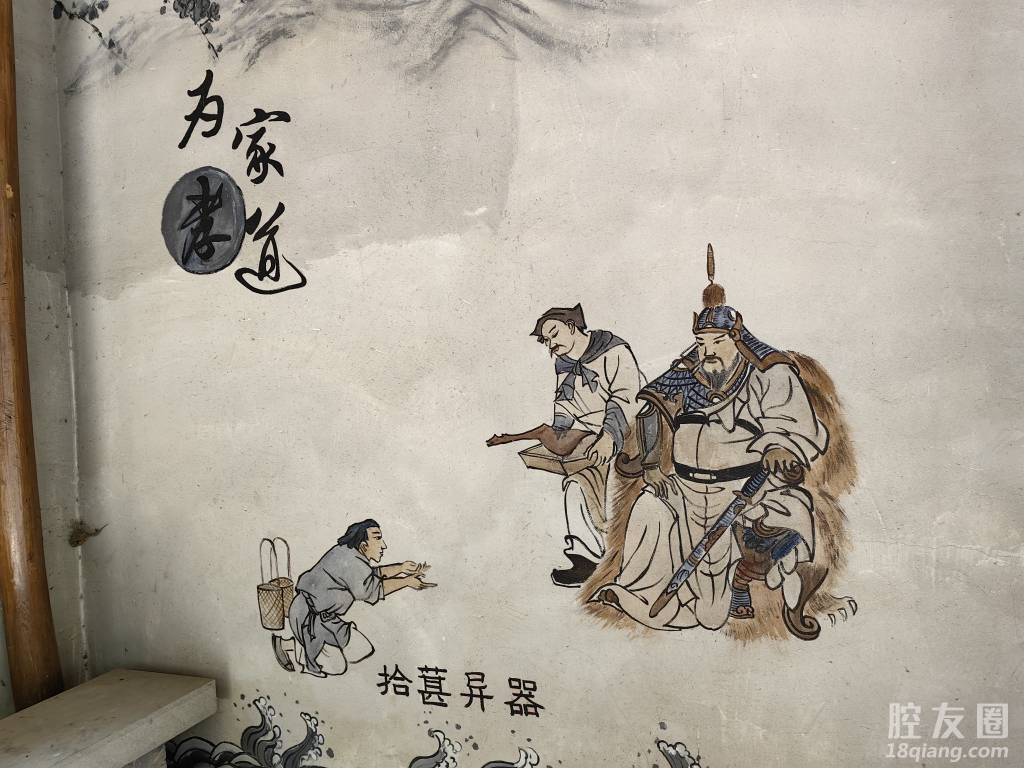 为家
孝道
拾葚异器
腔友圈
18qiang.com